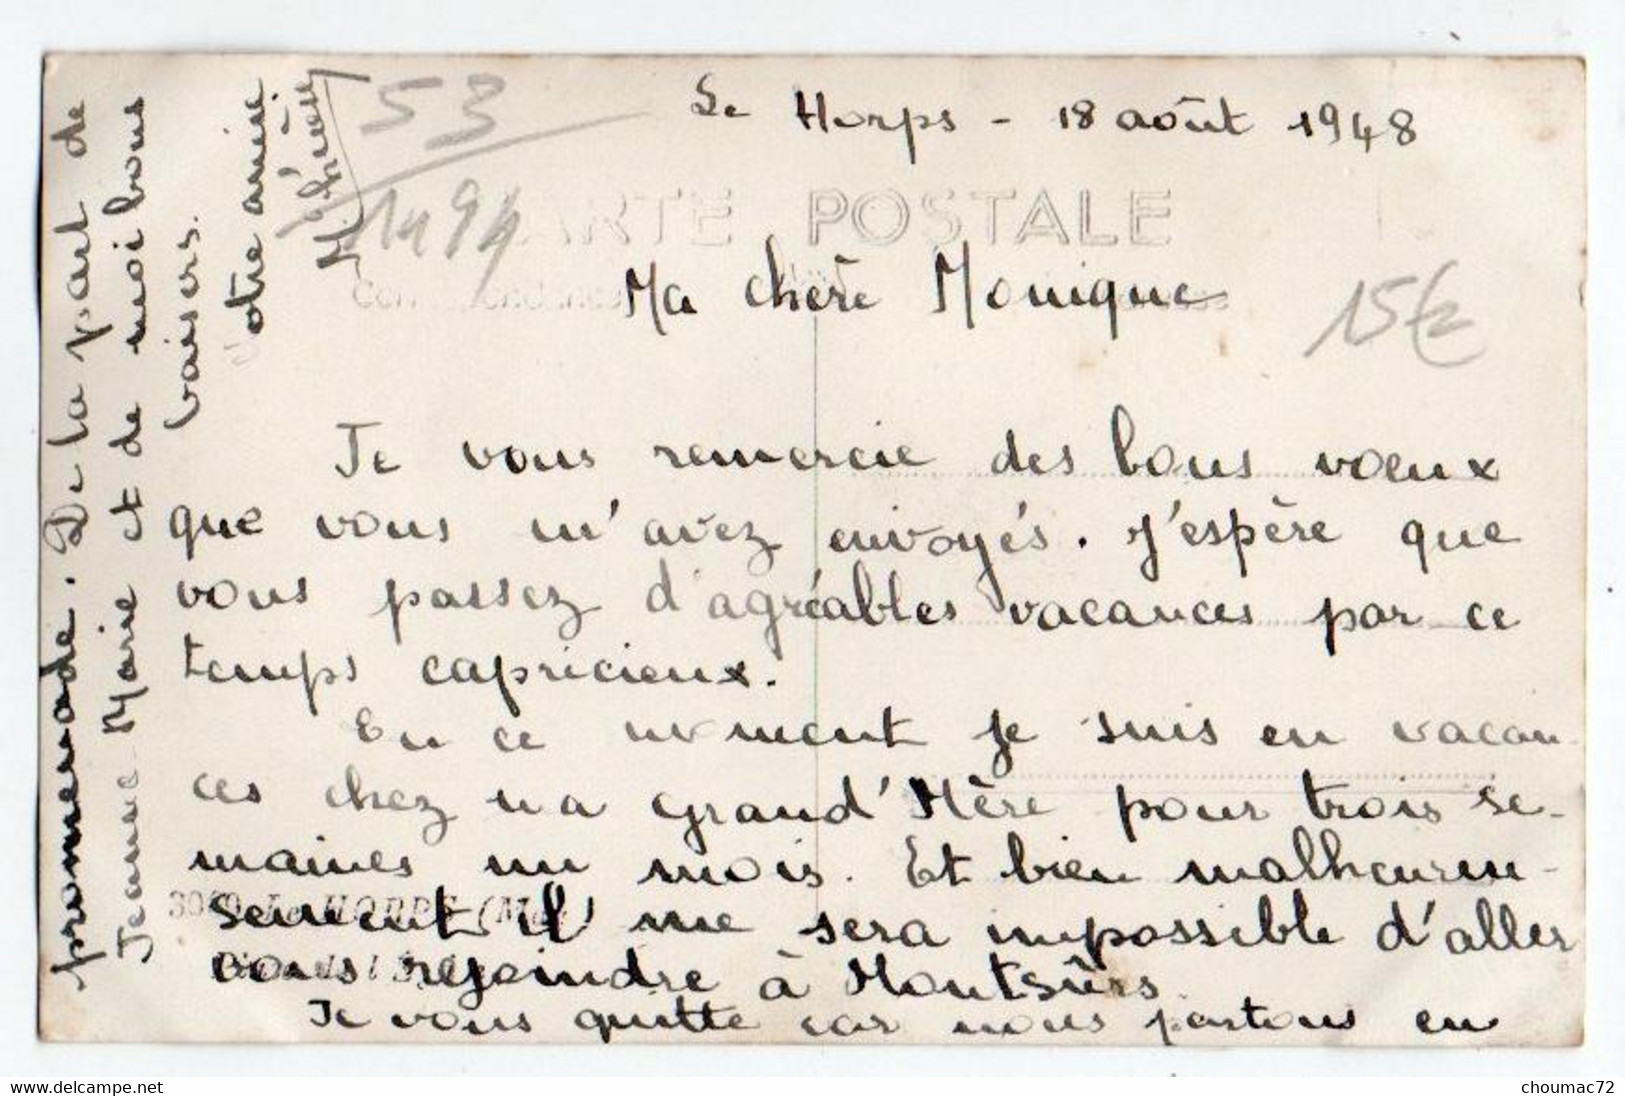 Le Horps - 18 août 1948
53
1494
CARTE POSTALE
Correspondance
15€
Ma chère Monique
Je vous remercie des bons voeux
que vous m'avez envoyés. J'espère que
vous passez d'agréables vacances par ce
temps capricieux.
En ce moment je suis en vacan
ces chez ma Grand'Mère pour trois se-
maines un mois. Et bien malheureu-
sement il me sera impossible d'aller
vous rejoindre à Montsûrs.
Je vous quitte car nous partons en
promenade. De la part de
Jeanne Marie et de moi bons
baisers.
Votre amie.
Le HORPS (May.)
choumac72